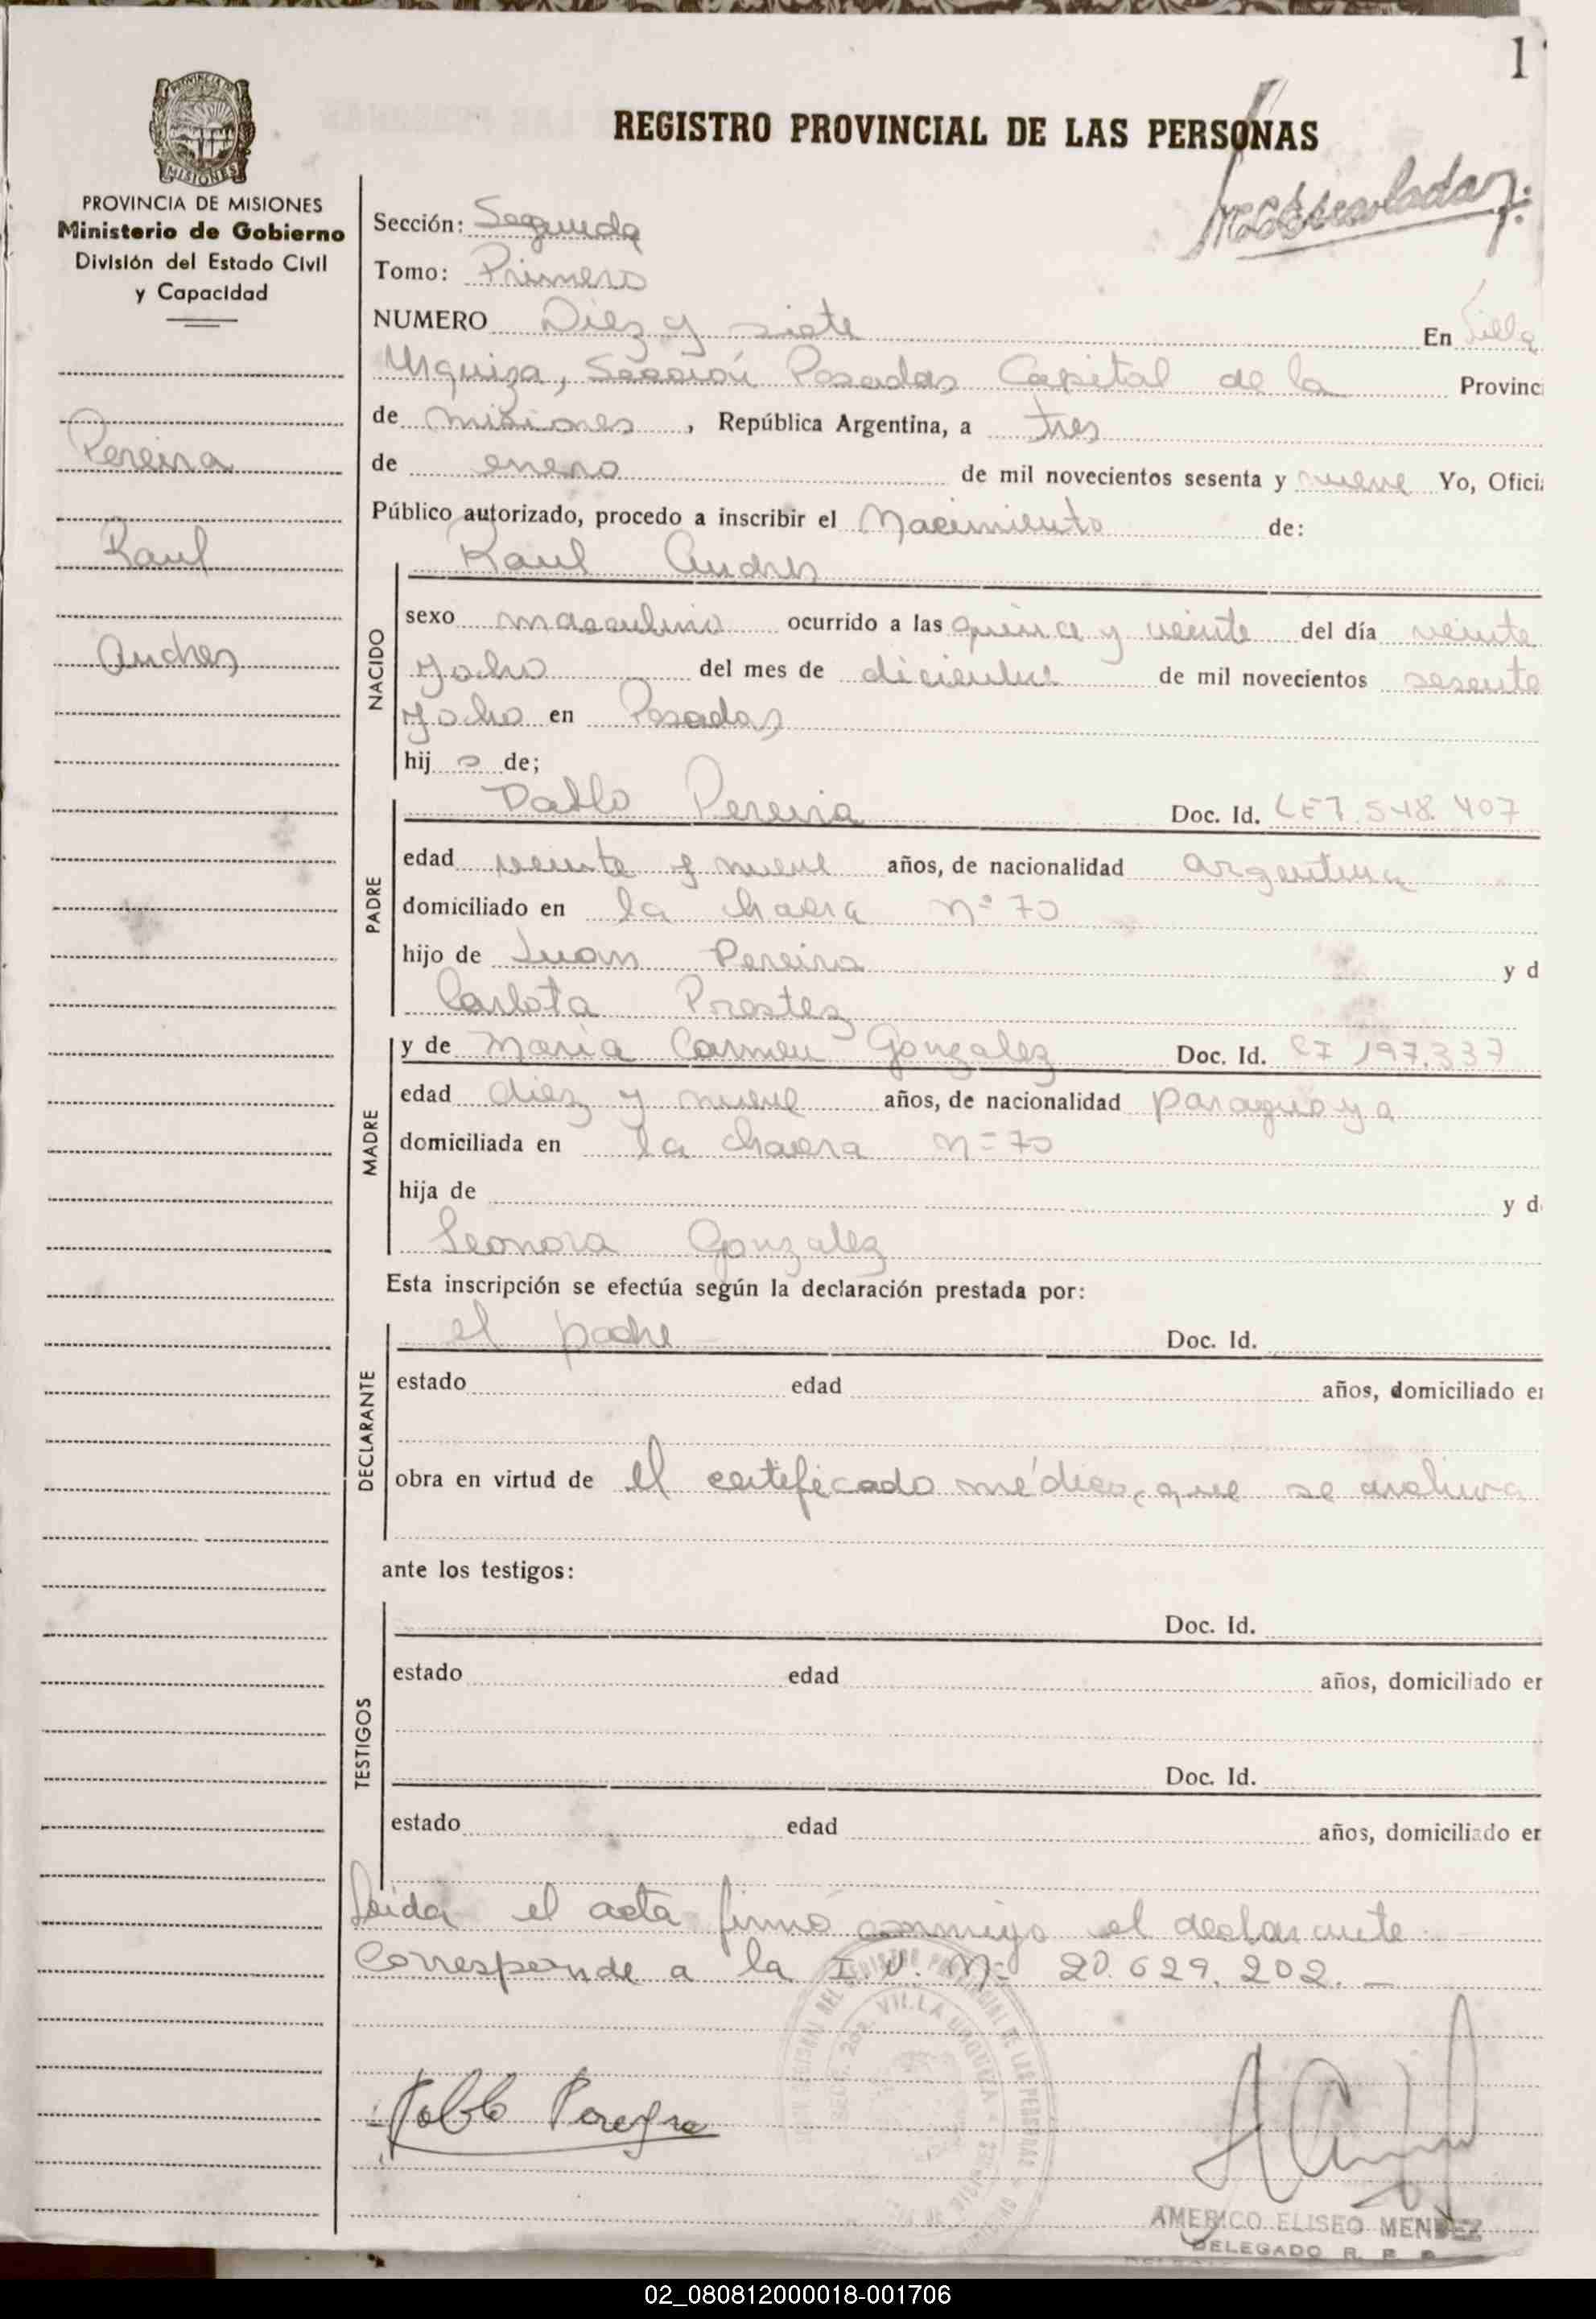 1
REGISTRO PROVINCIAL DE LAS PERSONAS
PROVINCIA DE MISIONES
Ministerio de Gobierno
División del Estado Civil
y Capacidad
Pereira
Raul
Andres
Sección: Segunda
Tomo: Primero
NUMERO Diez y siete En Villa
Urquiza, Sección Posadas Capital de la Provinc
de Misiones, República Argentina, a tres
de enero de mil novecientos sesenta y nueve Yo, Ofici
Público autorizado, procedo a inscribir el Nacimiento de:
NACIDO
Raul Andres
sexo masculino ocurrido a las quince y veinte del día veinte
y ocho del mes de diciembre de mil novecientos sesenta
y ocho en Posadas
hij o de;
PADRE
Pablo Pereira Doc. Id. LE 7.548.407
edad veinte y nueve años, de nacionalidad argentina
domiciliado en la chacra nº 70
hijo de Juan Pereira y d
Carlota Prostez
MADRE
y de Maria Carmen Gonzalez Doc. Id. CI 197.337
edad diez y nueve años, de nacionalidad paraguaya
domiciliada en la chacra nº 70
hija de y d
Leonora Gonzalez
Esta inscripción se efectúa según la declaración prestada por:
DECLARANTE
el padre Doc. Id.
estado edad años, domiciliado en
obra en virtud de el certificado médico, que se archiva
ante los testigos:
TESTIGOS
Doc. Id.
estado edad años, domiciliado er
Doc. Id.
estado edad años, domiciliado er
Leida el acta firmó conmigo el declarante.
Corresponde a la I.D. Nº 20.629.202. —
VILLA URQUIZA
Pablo Pereyra
AMERICO ELISEO MENDEZ
DELEGADO R. P. P.
02_080812000018-001706